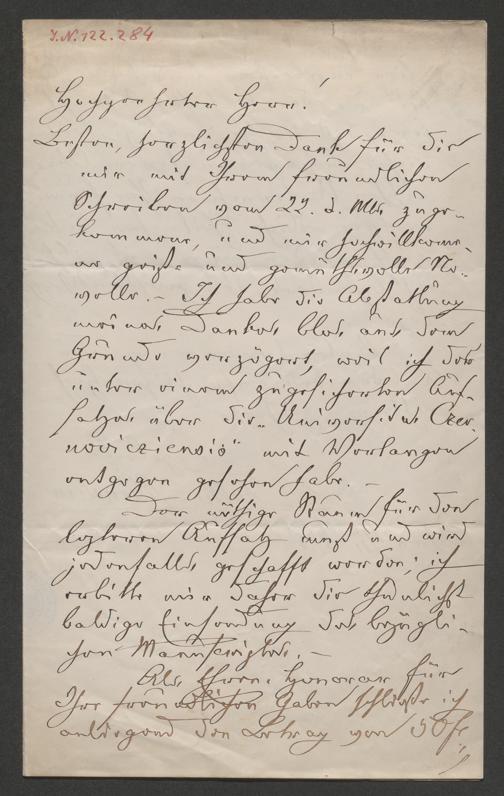 J.N. 122.284
Hochgeehrter Herr!
Besten, herzlichsten Dank für die
mir mit Ihrem freundlichen
Schreiben vom 22. d. Mts. zuge-
kommene, und mir hochwillkomme-
ne geist- und gemüthvolle No-
velle. – Ich habe die Abstattung
meines Dankes blos aus dem
Grunde verzögert, weil ich dem
unter einem zugesicherten Auf-
satze über die „Universitas Czer-
novicziensis" mit Verlangen
entgegen gesehen habe. –
Der nöthige Raum für den
letzteren Aufsatz muß und wird
jedenfalls geschafft werden; ich
erbitte mir daher die thunlichst
baldige Einsendung des bezügli-
chen Manuscriptes. –
Als Honorar für
Ihre freundlichen Gaben schließe ich
anliegend den Betrag von 50 f